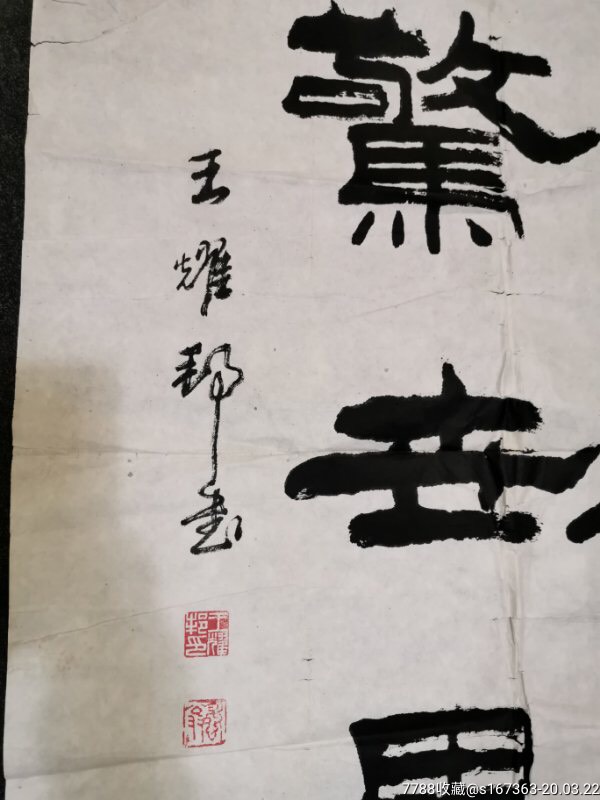 驚世
王耀邦書
王耀邦印
7788收藏@s167363-20.03.22